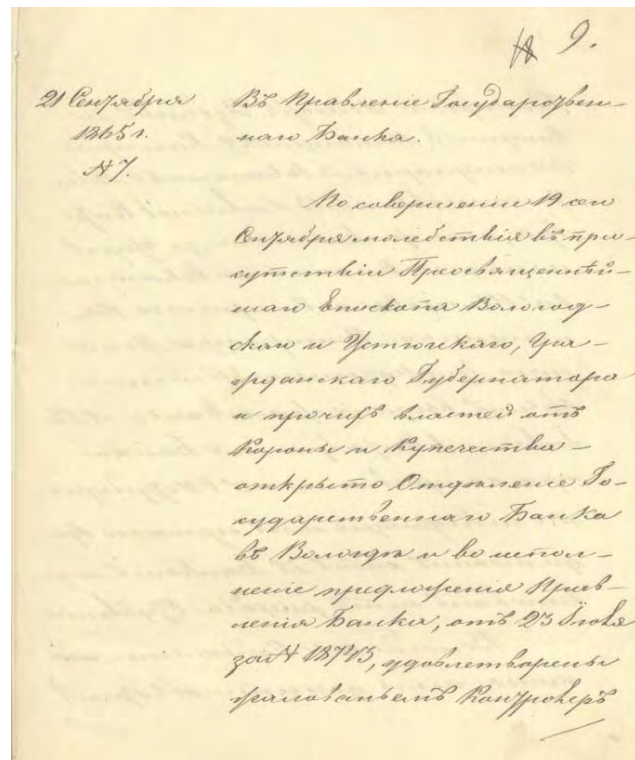 9.
21 Сентября
1865 г.
№ 7.
Въ Правленіе Государствен-
наго Банка.
По совершеніи 19 сего
Сентября молебствія въ при-
сутствіи Преосвященнѣй-
шаго Епископа Вологод-
скаго и Устюжскаго, Гра-
жданскаго Губернатора
и прочихъ властей отъ
Короны и Купечества –
открыто Отдѣленіе Го-
сударственнаго Банка
въ Вологдѣ и во испол-
неніе предложенія Прав-
ленія Банка, отъ 23 Іюля
за №, удовлетворены
жалованьемъ Контролеръ